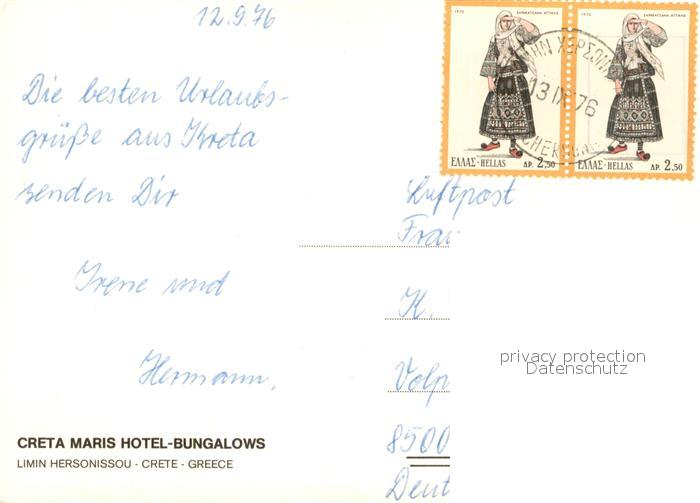 12.9.76
Die besten Urlaubs-
grüße aus Kreta
senden Dir
Irene und
Hermann.
CRETA MARIS HOTEL-BUNGALOWS
LIMIN HERSONISSOU - CRETE - GREECE
1972 ΣΑΡΑΚΑΤΣΑΝΑ ΑΤΤΙΚΗΣ
ΕΛΛΑΣ-HELLAS ΔΡ. 2,50
1972 ΣΑΡΑΚΑΤΣΑΝΑ ΑΤΤΙΚΗΣ
ΕΛΛΑΣ-HELLAS ΔΡ. 2,50
13 IX 76
Luftpost
Frau
K.
Volp
8500
Deut
privacy protection
Datenschutz